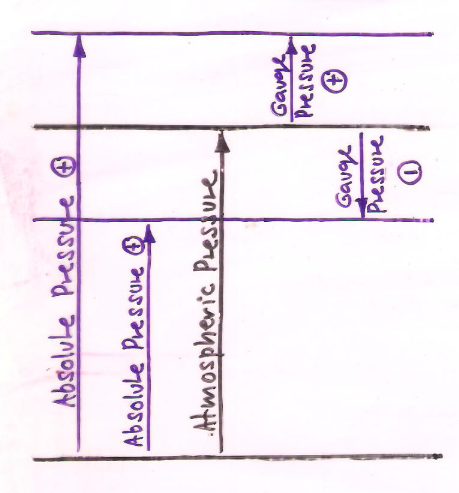 Absolute Pressure ⊕
Absolute Pressure ⊕
Atmospheric Pressure
Gauge
Pressure ⊕
Gauge
Pressure ⊖